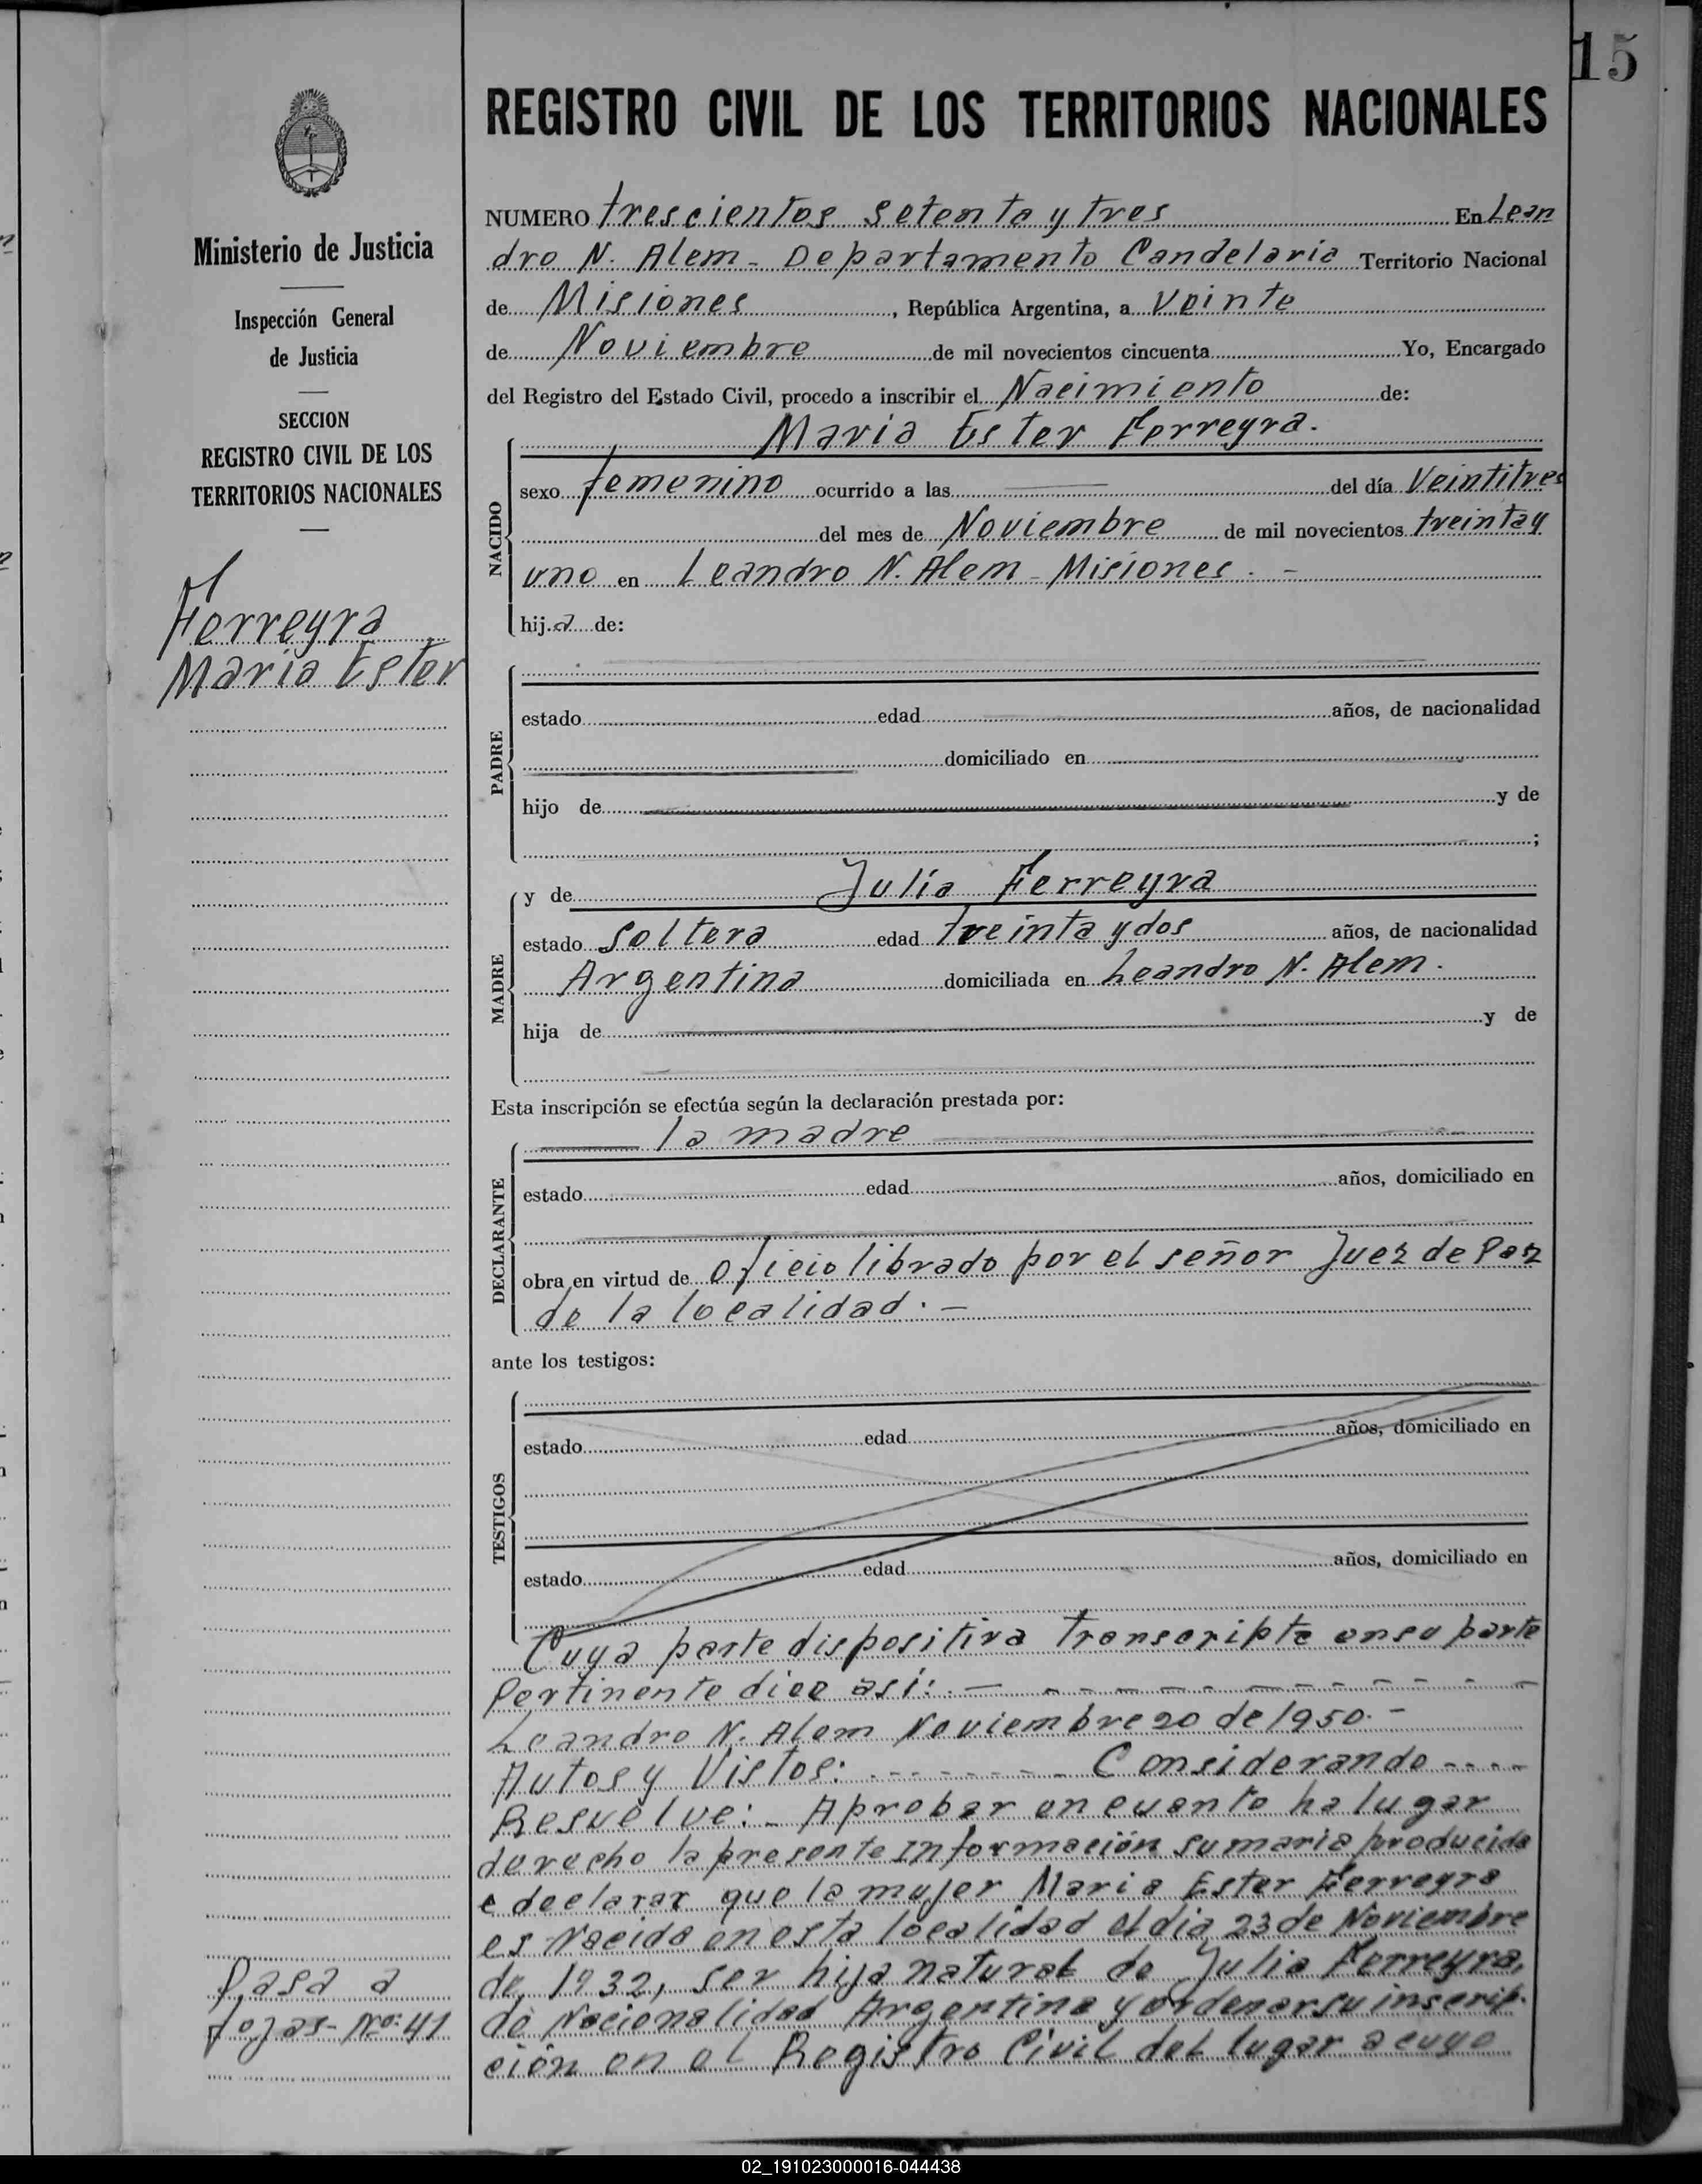 15
REGISTRO CIVIL DE LOS TERRITORIOS NACIONALES
Ministerio de Justicia
Inspección General
de Justicia
SECCION
REGISTRO CIVIL DE LOS
TERRITORIOS NACIONALES
Ferreyra
Maria Ester
Pasa a
fojas - Nº: 41
NUMERO trescientos setenta y tres En Lean
dro N. Alem - Departamento Candelaria Territorio Nacional
de Misiones, República Argentina, a veinte
de Noviembre de mil novecientos cincuenta Yo, Encargado
del Registro del Estado Civil, procedo a inscribir el Nacimiento de:
Maria Ester Ferreyra.
NACIDO
sexo femenino ocurrido a las del día Veintitres
del mes de Noviembre de mil novecientos treinta y
uno en Leandro N. Alem - Misiones. -
hija de:
PADRE
estado edad años, de nacionalidad
domiciliado en
hijo de y de
;
MADRE
y de Julia Ferreyra
estado Soltera edad treinta y dos años, de nacionalidad
Argentina domiciliada en Leandro N. Alem.
hija de y de
Esta inscripción se efectúa según la declaración prestada por:
la madre
DECLARANTE
estado edad años, domiciliado en
obra en virtud de oficio librado por el señor Juez de Paz
de la localidad. -
ante los testigos:
TESTIGOS
estado edad años, domiciliado en
estado edad años, domiciliado en
Cuya parte dispositiva transcripta en su parte
Pertinente dice así: - - - - - - - - - -
Leandro N. Alem Noviembre 20 de 1950. -
Autos y Vistos: - - - - - - - Considerando - - - -
Resuelve: - Aprobar en cuanto ha lugar
derecho la presente Información sumaria producida
e declarar que la mujer Maria Ester Ferreyra
es Nacida en esta localidad el dia 23 de Noviembre
de 1932, ser hija natural de Julia Ferreyra,
de Nacionalidad Argentina y ordenar su inscrip-
ción en el Registro Civil del lugar a cuyo
02_191023000016-044438